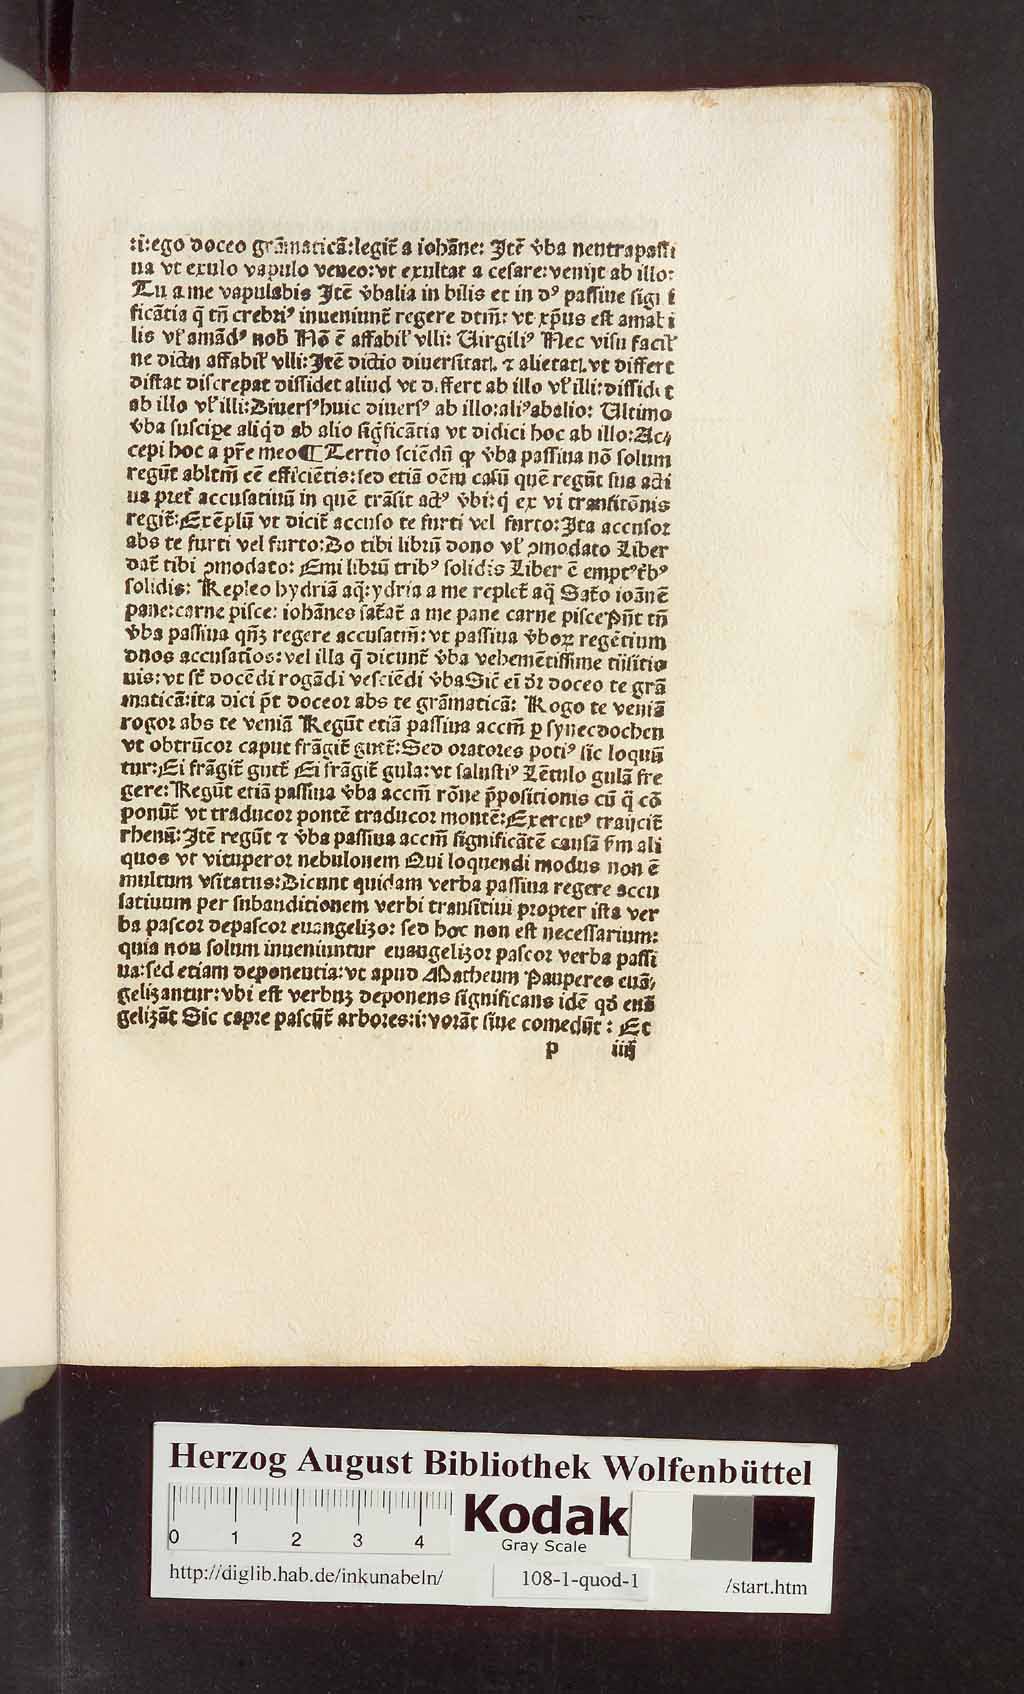 :i:ego doceo grāmaticā:legit̄ a iohāne: Itē v̄ba neutrapassi
ua vt exulo vapulo veneo:vt exultat a cesare:venijt ab illo:
Tu a me vapulabis Itē v̄balia in bilis et in dꝰ passiue sigi i
ficātia q̄ tn̄ crebriꝰ inueniunt̄ regere dtm̄: vt xp̄us est amabi
lis vl̓ amādꝰ nob̄ Nō ē affabil̓ vlli: Uirgiliꝰ Nec visu facil̓
ne dictu affabil̓ vlli:Itē dictio diuersitatꝭ ⁊ alietatꝭ vt differt
distat discrepat dissidet aliud vt differt ab illo vl̓ illi:dissidet
ab illo vl̓ illi:Diuersꝰ huic diuersꝰ ab illo:aliꝰ abalio: Ultimo
v̄ba suscipe aliq̇d ab alio sig̅ficātia vt didici hoc ab illo:Ac⸗
cepi hoc a pr̄e meo ¶ Tertio sciēdū ꝙ v̄ba passiua nō solum
regūt abltm̄ eē efficiētis:sed etiā oēm casū quē regūt sua acti
ua pret̄ accusatiuū in quē trāsit actꝰ v̄bi:q̇ ex vi transitōnis
regit̄:Exēplū vt dicit̄ accuso te furti vel furto:Ita accusor
abs te furti vel furto:Do tibi librū dono vl̓ ꝯmodato Liber
dat̄ tibi ꝯmodato: Emi librū tribꝰ solidis Liber ē emptꝰ t̄bꝰ
solidis: Repleo hydriā aq̄:ydria a me replet̄ aq̄ Sato ioānē
pane:carne pisce: iohānes sat̄at̄ a me pane carne pisce Pn̄t tn̄
v̄ba passiua qn̄ꝫ regere accusatm̄:vt passiua v̄boꝝ regētium
duos accusatios:vel illa q̄ dicunt̄ v̄ba vehemētissime tn̄sitio
nis:vt st̄ docēdi rogādi vesciēdi v̄ba Sic̄ ei̅ dr̄ doceo te grā
maticā:ita dici pt̄ doceor abs te grāmaticā: Rogo te veniā
rogor abs te veniā Regūt etiā passiua accm̄ ꝑ synecdochen
vt obtrūcor caput frāgit̄ gutt̄:Sed oratores potiꝰ sic loquū
tur:Ei frāgit̄ gutt̄ Ei frāgit̄ gula:vt salustiꝰ Lētulo gulā fre
gere:Regūt etiā passiua v̄ba accm̄ rōne p̄positionis cū q̄ cō
ponūt̄ vt traducor pontē traducor montē:Exercitꝰ traijcit̄
rhenū:Itē regūt ⁊ v̄ba passiua accm̄ significātē causā s̄m ali
quos vt vituperor nebulonem Qui loquendi modus non ē
multum vsitatus:Dicunt quidam verba passiua regere accu
satiuum per subauditionem verbi transitiui propter ista ver
ba pascor depascor euangelizor sed hoc non est necessarium:
quia non solum inueniuntur euangelizor pascor verba passi
ua:sed etiam deponentia:vt apud Matheum Pauperes euā⸗
gelizantur:vbi est verbuꝫ deponens significans idē qd̄ euā
gelizāt Sic capre pascūt̄ arbores:i:vorāt siue comedūt : Et
p iiij
Herzog August Bibliothek Wolfenbüttel
0 1 2 3 4
Kodak
Gray Scale
http://diglib.hab.de/inkunabeln/
108-1-quod-1
/start.htm